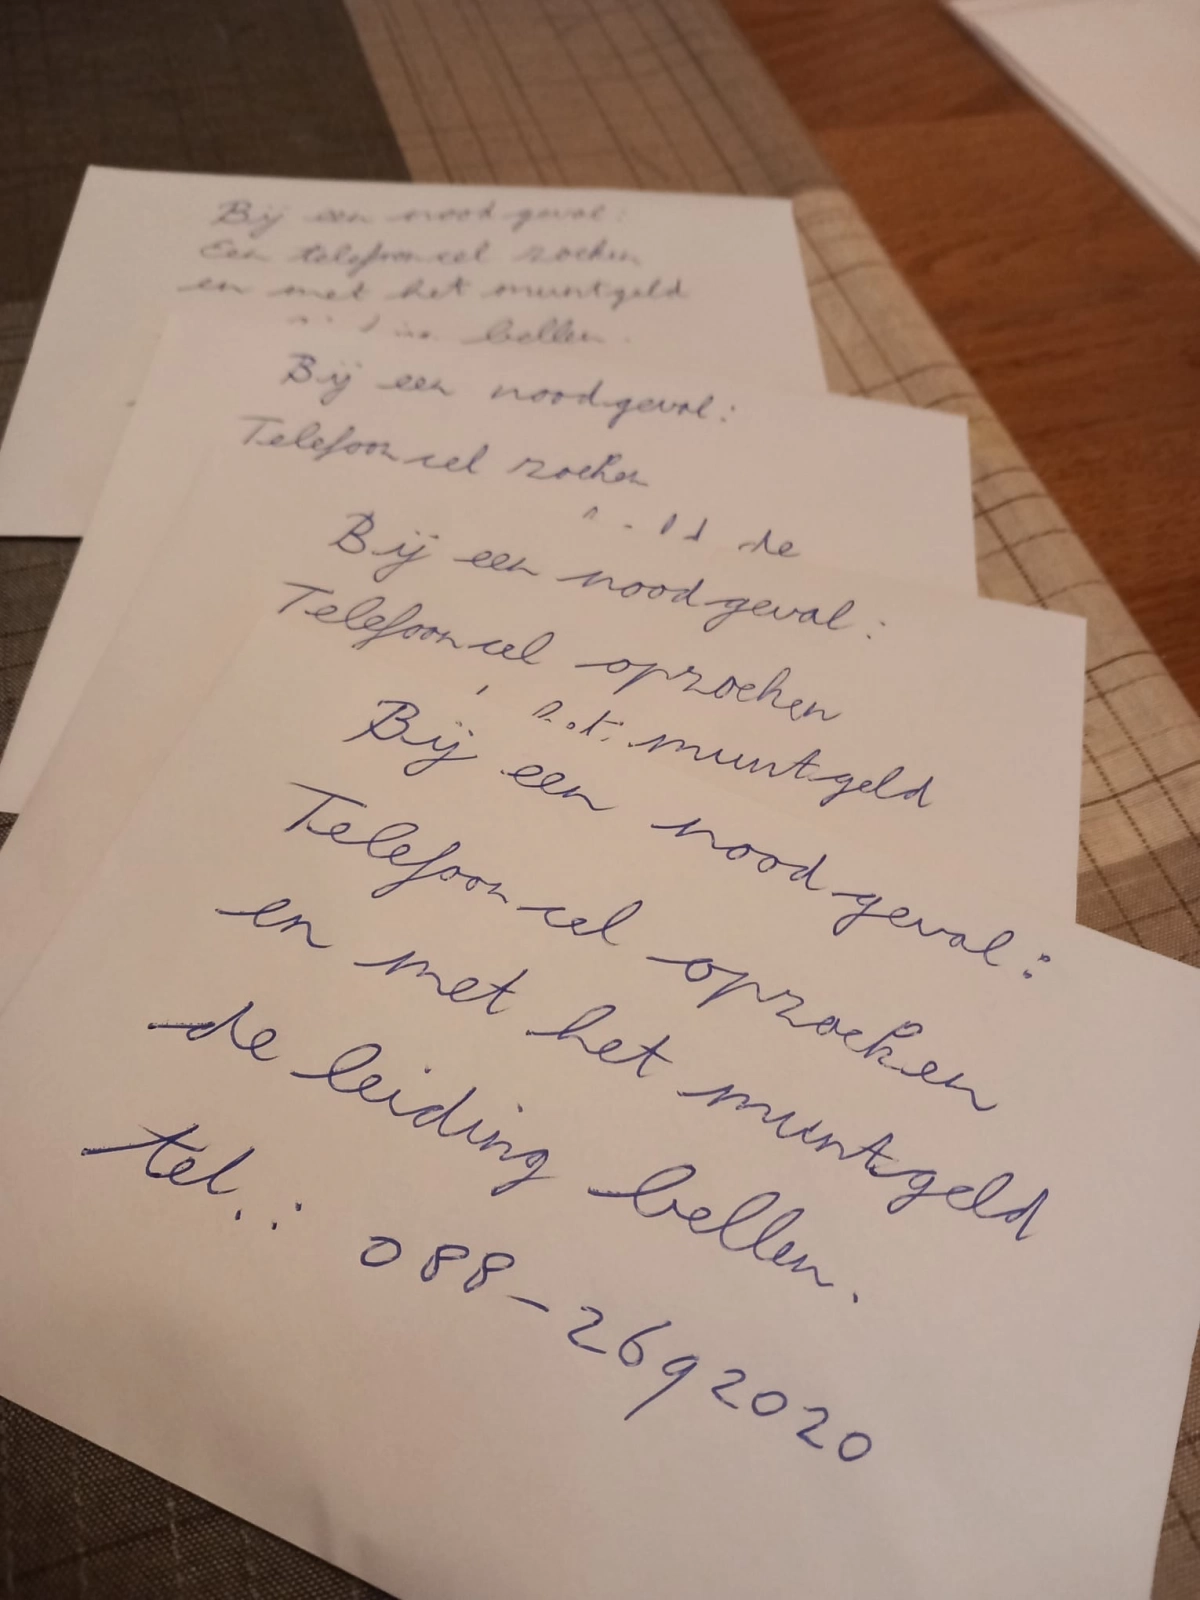 Bij een noodgeval:
Een telefooncel zoeken
en met het muntgeld
bellen.
Bij een noodgeval:
Telefooncel zoeken
de
Bij een noodgeval:
Telefooncel opzoeken
muntgeld
Bij een noodgeval:
Telefooncel opzoeken
en met het muntgeld
de leiding bellen.
tel.: 088-2692020